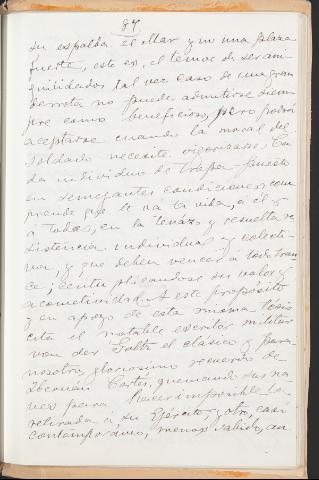 87
su espalda el mar y no una plaza
fuerte, esto es, el temor de ser ani-
quilidados tal vez caso de una gran
derrota no puede admitirse siem
pre como beneficioso, pero podrá
aceptarse cuando la moral del
soldado necesite vigorizarse. Ca
da individuo de tropa puesto
en semejantes condiciones com
prende que le va la vida, a él y
á todos, en la tenáz y resuelta re
sistencia individual y colecti-
va, y que deben vencer á todo tran
ce; centuplicandose su valor y
acometividad. A este propósito
y en apoyo de esta misma tésis
cita el notable escritor militar
von der Goltz el clásico y para
nosotros gloriosimo recuerdo de
Hernán Cortés, quemando sus na
ves para hacer imposible la
retirada á su Ejército, y otro, casi
contemporáneo, menos sabido, an